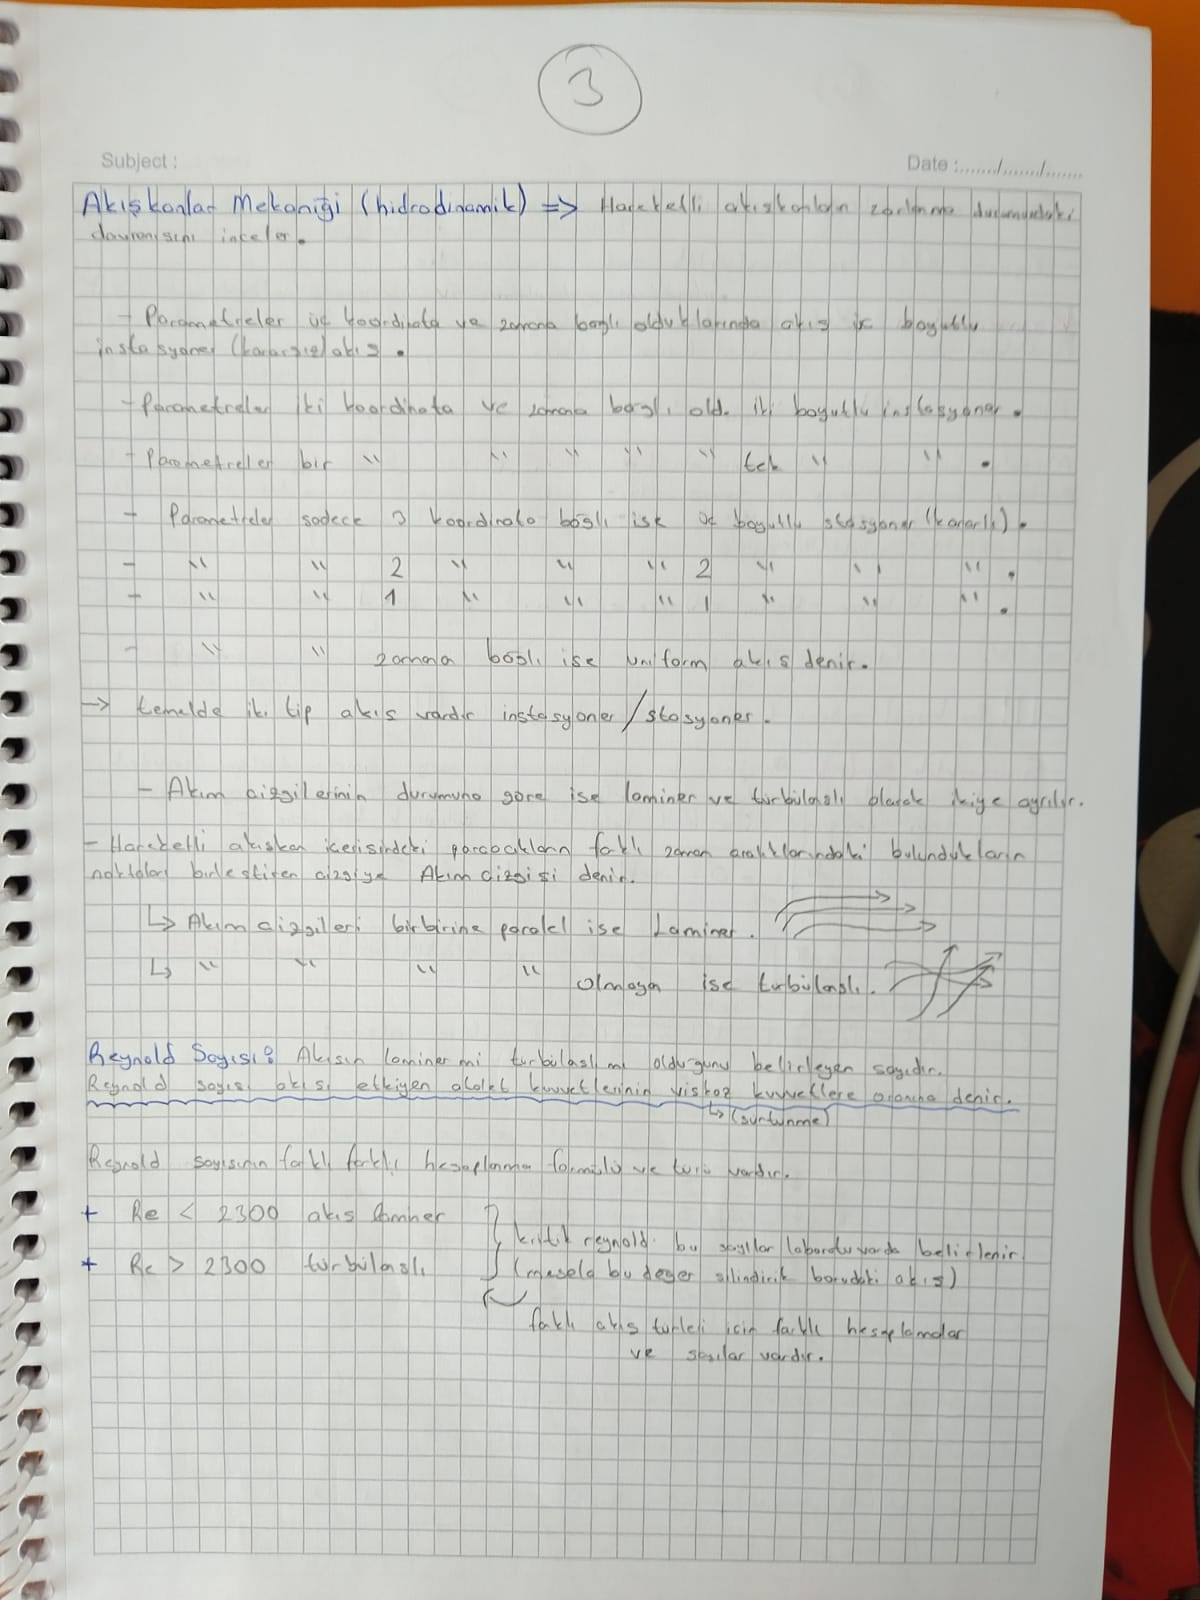 3
Subject :
Date :....../....../......
Akışkanlar Mekaniği (hidrodinamik) => Hareketli akışkanların zorlanma durumundaki
davranışını inceler.
- Parametreler üç koordinata ve zamana bağlı olduklarında akış üç boyutlu
instasyoner (kararsız) akış.
- Parametreler iki koordinata ve zamana bağlı old. iki boyutlu instasyoner.
- Parametreler bir " " " " " tek " " .
- Parametreler sadece 3 koordinata bağlı ise üç boyutlu stasyoner (kararlı).
- " " 2 " " " 2 " " " .
- " " 1 " " " 1 " " " .
- " " zamana bağlı ise uniform akış denir.
-> temelde iki tip akış vardır instasyoner/stasyoner.
- Akım çizgilerinin durumuna göre ise laminer ve türbülaslı olarak ikiye ayrılır.
- Hareketli akışkan içerisindeki parçacıkların farklı zaman aralıklarındaki bulundukların
noktaları birleştiren çizgiye Akım çizgisi denir.
↳ Akım çizgileri birbirine paralel ise Laminer.
↳ " " " " olmaya ise türbülaslı.
Reynold Sayısı: Akışın laminer mi türbülaslı mı olduğunu belirleyen sayıdır.
Reynold sayısı akışı etkiyen atalet kuvvetlerinin viskoz kuvvetlere oranına denir.
↳ (sürtünme)
Reynold sayısının farklı farklı hesaplanma formülü ve türü vardır.
+ Re < 2300 akış laminer
kritik reynold. bu sayılar laboratuvarda belirlenir
+ Re > 2300 türbülaslı
(mesela bu değer silindirik borudaki akış)
farklı akış türleri için farklı hesaplamalar
ve sayılar vardır.